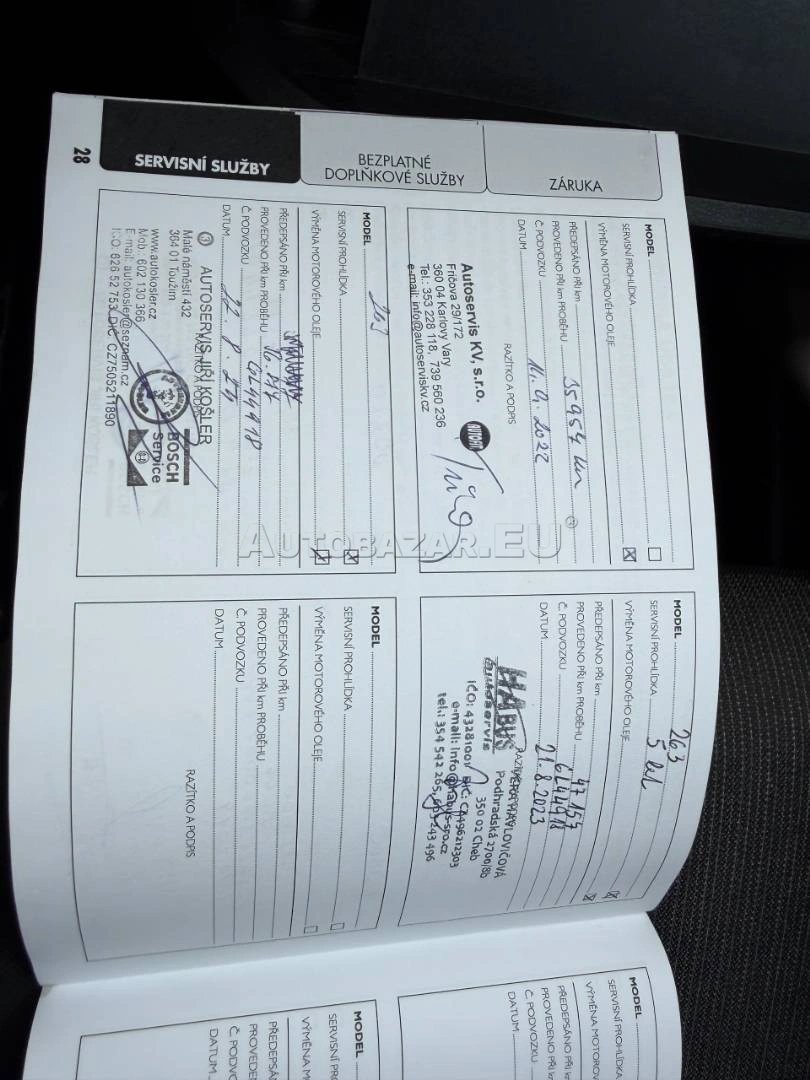 28
SERVISNÍ SLUŽBY
BEZPLATNÉ
DOPLŇKOVÉ SLUŽBY
ZÁRUKA
MODEL
SERVISNÍ PROHLÍDKA
VÝMĚNA MOTOROVÉHO OLEJE
PŘEDEPSÁNO PŘI km
PROVEDENO PŘI km PROBĚHU 35954 km
Č. PODVOZKU
DATUM 14.9.2022
RAZÍTKO A PODPIS
Autoservis KV, s.r.o.
Fričova 29/172
360 04 Karlovy Vary
Tel.: 353 228 118, 739 560 236
e-mail: info@autoserviskv.cz
MODEL 263
SERVISNÍ PROHLÍDKA 5 let
VÝMĚNA MOTOROVÉHO OLEJE
PŘEDEPSÁNO PŘI km
PROVEDENO PŘI km PROBĚHU 47 157
Č. PODVOZKU 6L44918
DATUM 21.8.2023
HABUS
autoservis
Podhradská 2700/8b
350 02 Cheb
IČO: 43281001
e-mail: info@habus-sro.cz
tel.: 354 542 265, 603 243 496
MODEL 263
SERVISNÍ PROHLÍDKA
VÝMĚNA MOTOROVÉHO OLEJE
PŘEDEPSÁNO PŘI km
PROVEDENO PŘI km PROBĚHU
Č. PODVOZKU 6L44918
DATUM 27.8.24
3 AUTOSERVIS JIŘÍ KOŠLER
Malé náměstí 432
364 01 Toužim
www.autokosler.cz
Mob.: 602 130 366
E-mail: autokosler@seznam.cz
IČO: 626 52 753, DIČ: CZ7505211890
BOSCH
Service
MODEL
SERVISNÍ PROHLÍDKA
VÝMĚNA MOTOROVÉHO OLEJE
PŘEDEPSÁNO PŘI km
PROVEDENO PŘI km PROBĚHU
Č. PODVOZKU
DATUM
RAZÍTKO A PODPIS
MODEL
SERVISNÍ PRO
VÝMĚNA MOTORO
PŘEDEPSÁNO PŘI km
PROVEDENO PŘI km
Č. PODVOZKU
DATUM
MODEL
SERVISNÍ PR
VÝMĚNA M
PŘEDEPSÁ
PROVEDE
Č. PODVO
DATUM
AUTOBAZAR.EU